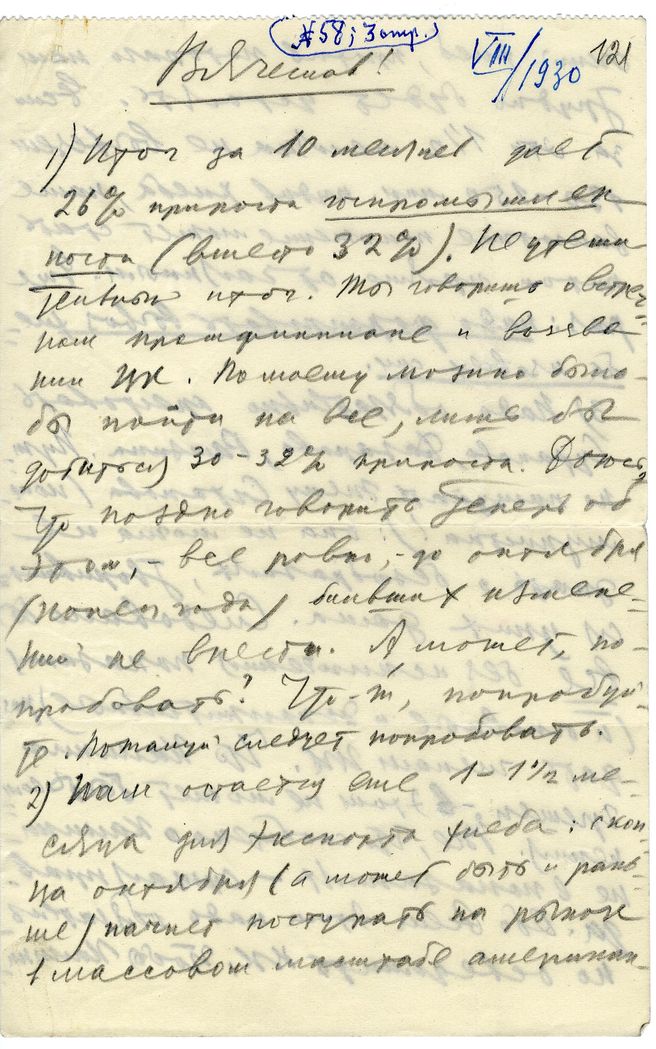 № 58; 3 стр.
VIII/1930
121
Вячеслав!
1) Итог за 10 месяцев дает
26% прироста госпромышлен
ности (вместо 32%). Неутеши
тельный итог. Ты говоришь о встреч-
ном промфинплане и воззва
нии ЦК. По моему можно было-
бы пойти на все, лишь бы
добиться 30-32% прироста. Боюсь,
что поздно говорить теперь об
этом, - все равно, - до октября
(конец года) больших измене-
ний не внести. А, может, по-
пробовать? Что-ж, попробуй-
те. Пожалуй следует попробовать.
2) Нам остается еще 1-1½ ме-
сяца для экспорта хлеба: с кон-
ца октября (а может быть и рань-
ше) начнет поступать на рынок
в массовом масштабе американ-